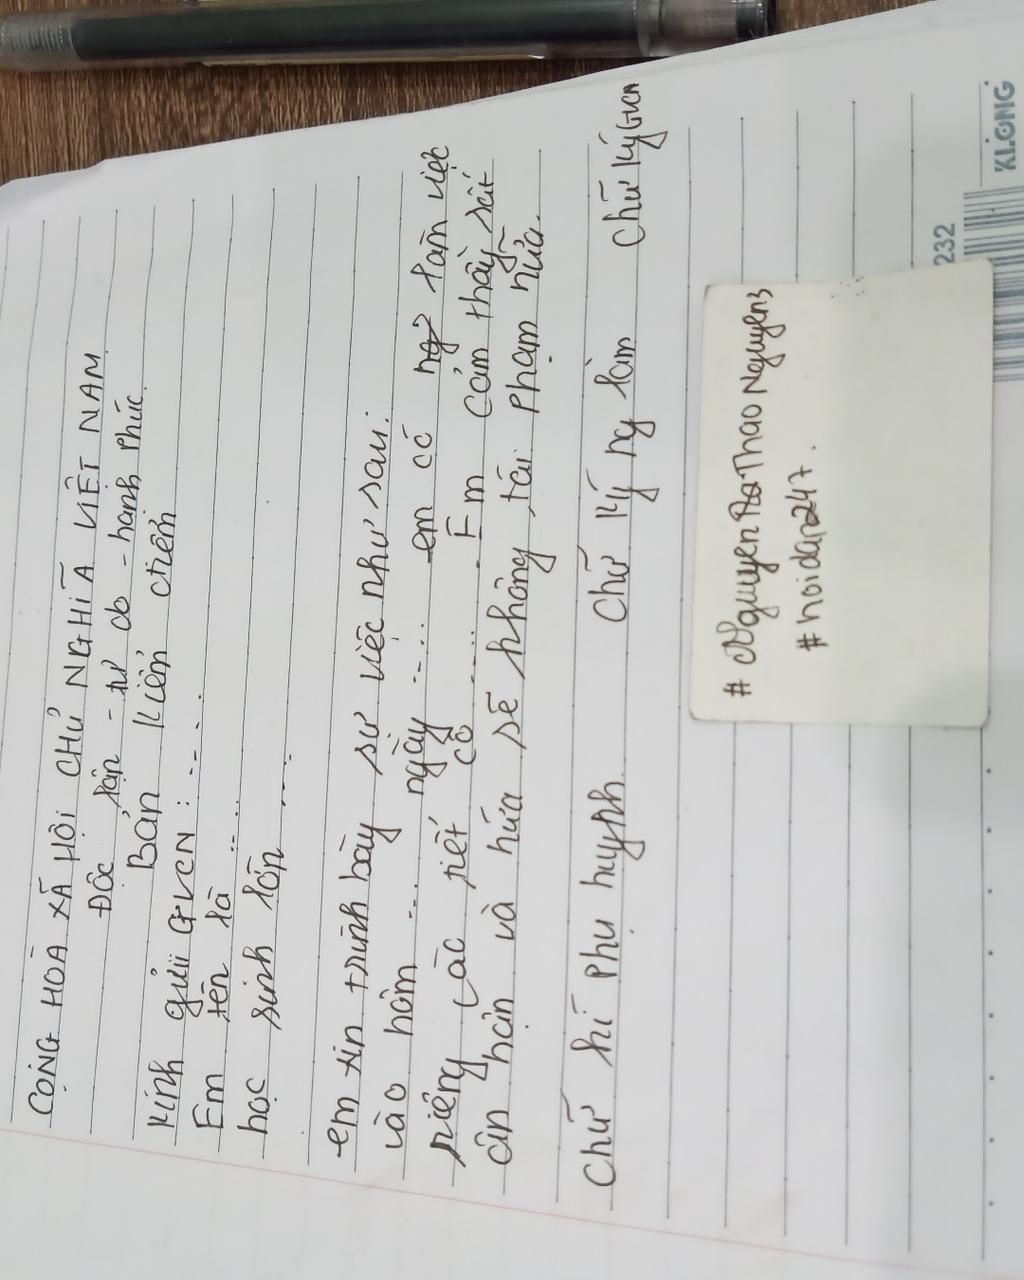 CỌNG HOÀ XÃ HỘI CHỦ NGHĨA VIỆT NAM
Độc lập - tự do - hạnh phúc.
Bản kiểm điểm
Kính gửi GVCN: ....
Em tên là ...
học sinh lớp ....
em xin trình bày sự việc như sau:
vào hôm ... ngày .... em có làm việc
riêng các tiết cô .... Em cảm thấy rất
ân hận và hứa sẽ không tái phạm nữa.
Chữ kí phụ huynh chữ ký ng làm chữ ký GVCN
#NguyenThaoNguyen3
#hoidap247.
232
KLONG